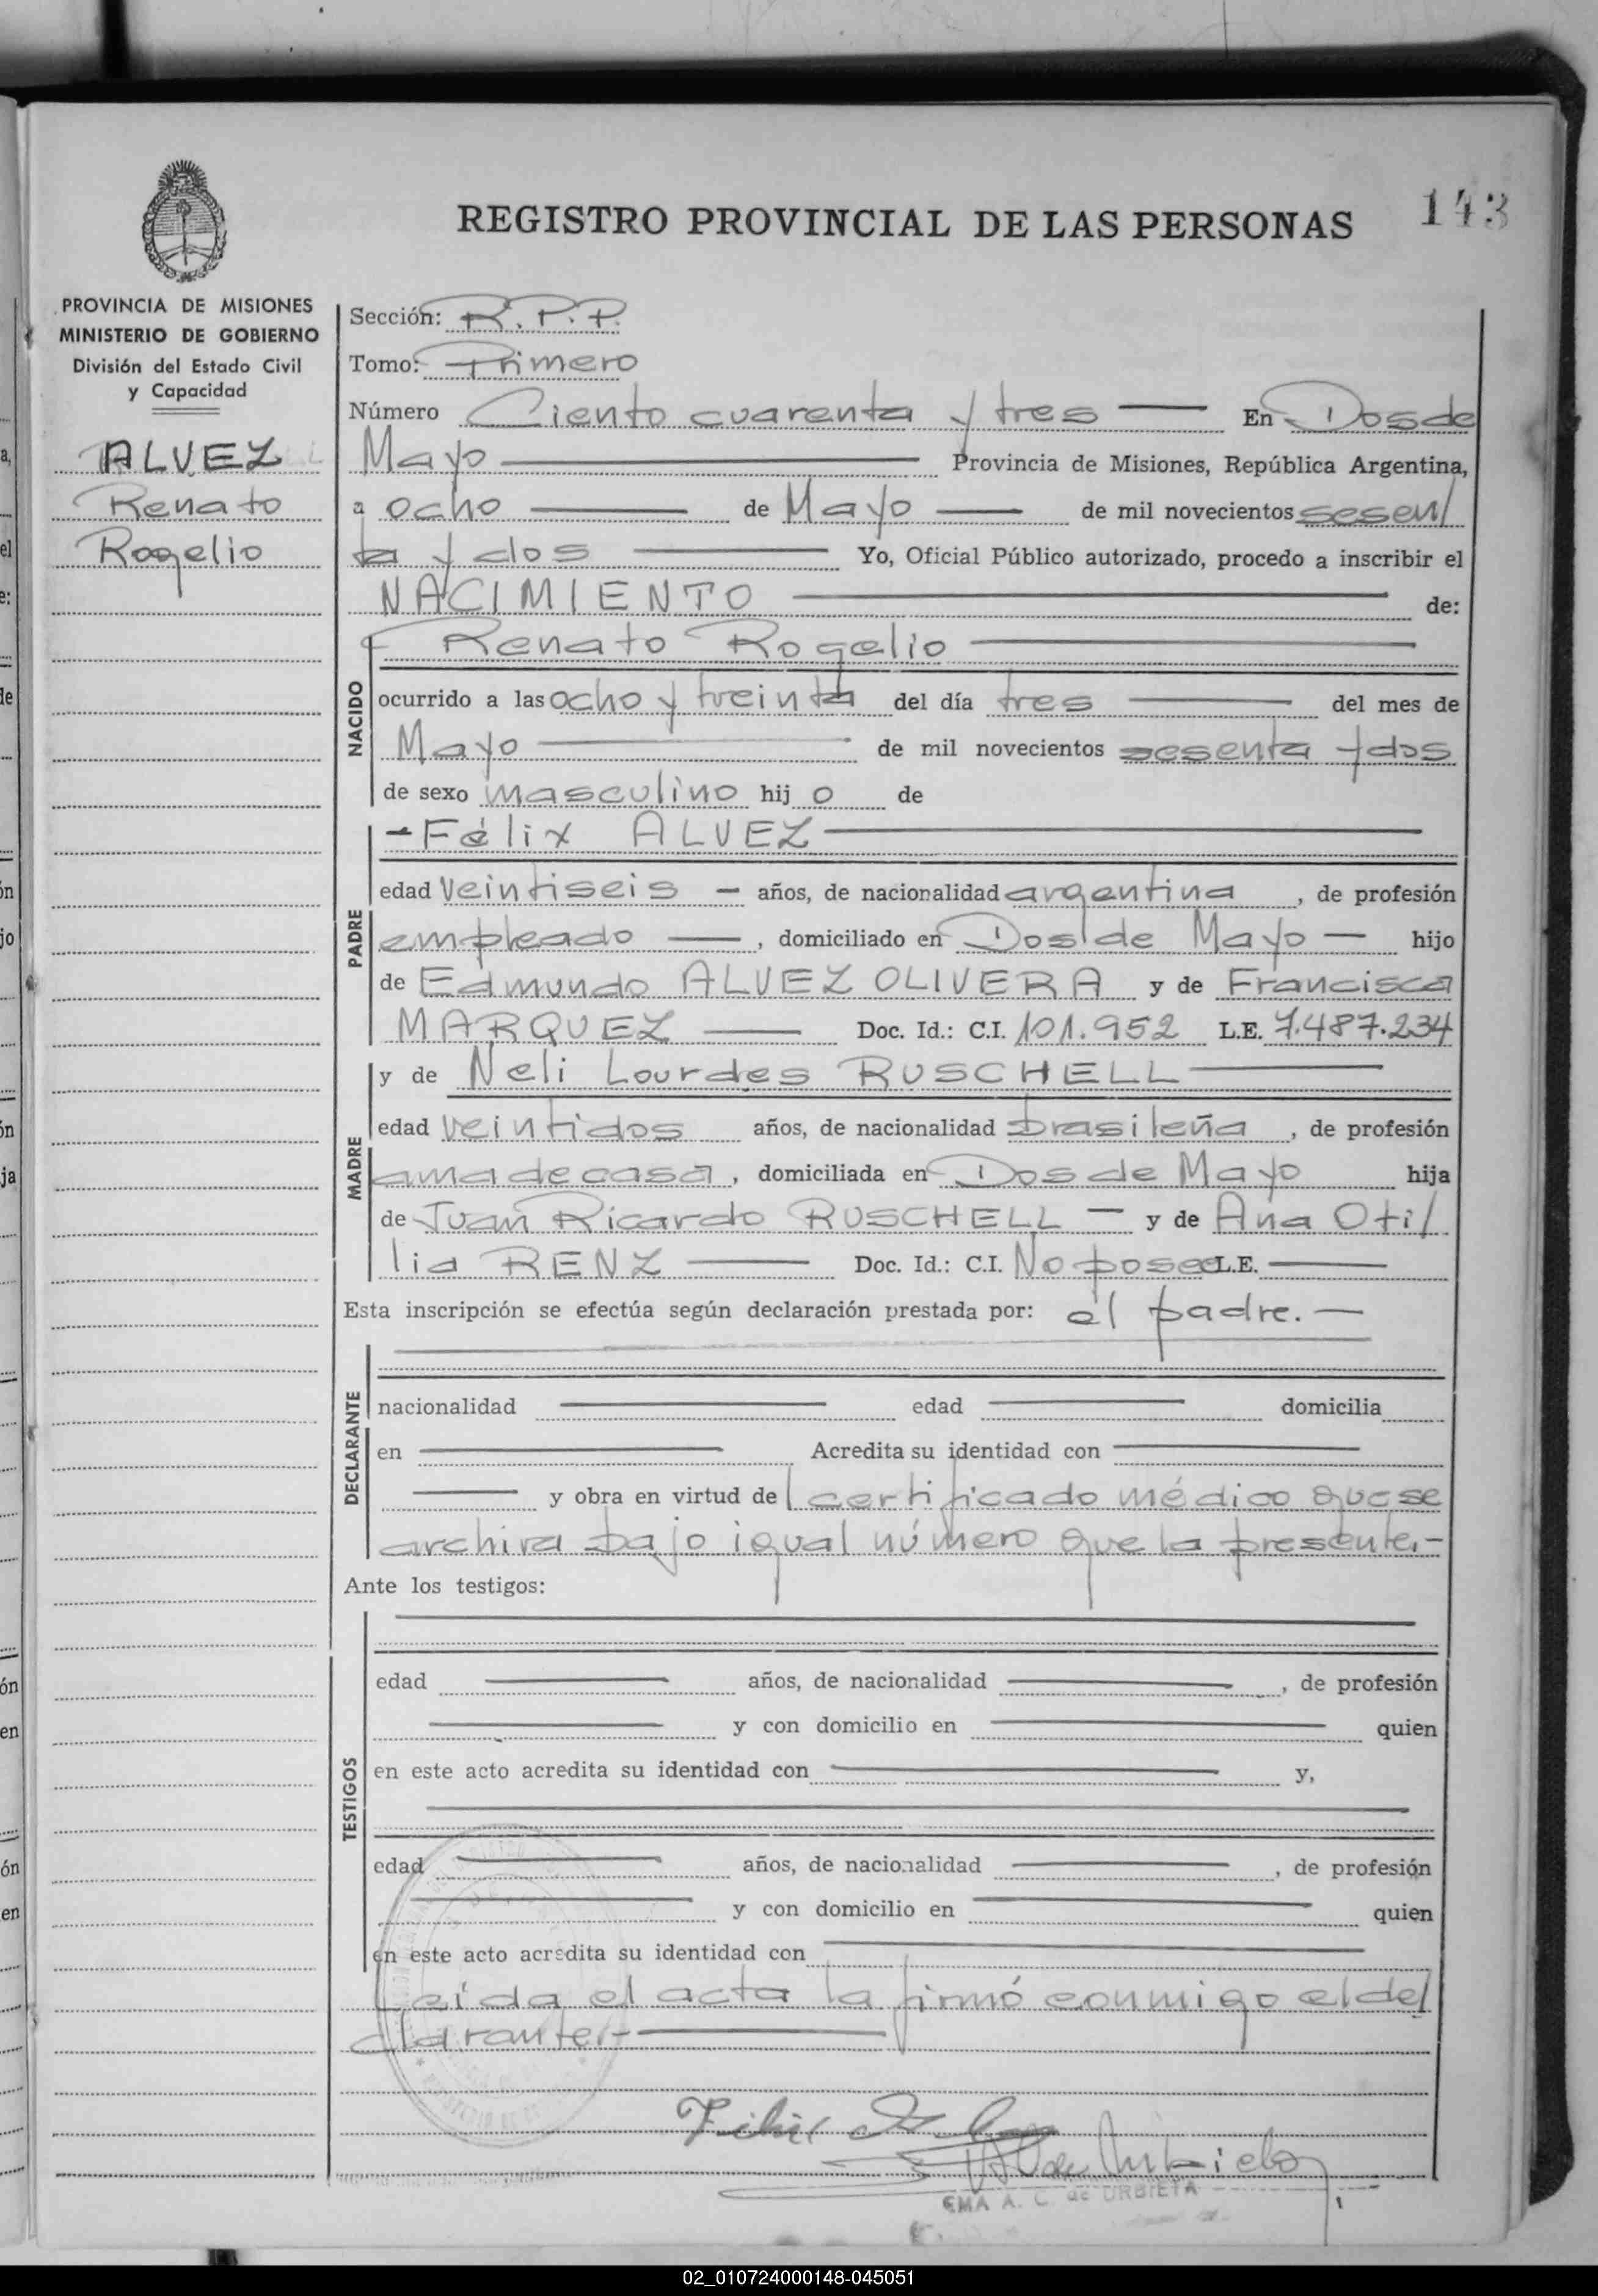 143
REGISTRO PROVINCIAL DE LAS PERSONAS
PROVINCIA DE MISIONES
MINISTERIO DE GOBIERNO
División del Estado Civil
y Capacidad
ALVEZ
Renato
Rogelio
Sección: R.P.P.
Tomo: Primero
Número Ciento cuarenta y tres En Dos de
Mayo Provincia de Misiones, República Argentina,
a ocho de Mayo de mil novecientos sesen/
ta y dos Yo, Oficial Público autorizado, procedo a inscribir el
NACIMIENTO de:
NACIDO
Renato Rogelio
ocurrido a las ocho y treinta del día tres del mes de
Mayo de mil novecientos sesenta y dos
de sexo masculino hij o de
PADRE
-Félix ALVEZ
edad veintiseis - años, de nacionalidad argentina, de profesión
empleado, domiciliado en Dos de Mayo - hijo
de Edmundo ALVEZ OLIVERA y de Francisca
MARQUEZ Doc. Id.: C.I. 101.952 L.E. 7.487.234
MADRE
y de Neli Lourdes RUSCHELL
edad veintidos años, de nacionalidad brasileña, de profesión
ama de casa, domiciliada en Dos de Mayo hija
de Juan Ricardo RUSCHELL - y de Ana Otil/
lia RENZ Doc. Id.: C.I. No posee L.E.
Esta inscripción se efectúa según declaración prestada por: el padre.-
DECLARANTE
nacionalidad edad domicilia
en Acredita su identidad con
y obra en virtud de certificado médico que se
archiva bajo igual número que la presente.-
Ante los testigos:
TESTIGOS
edad años, de nacionalidad , de profesión
y con domicilio en quien
en este acto acredita su identidad con y,
edad años, de nacionalidad , de profesión
y con domicilio en quien
en este acto acredita su identidad con
Leída el acta la firmó conmigo el de/
clarante.-
Felix
EMA A. C. de URBIETA
02_010724000148-045051